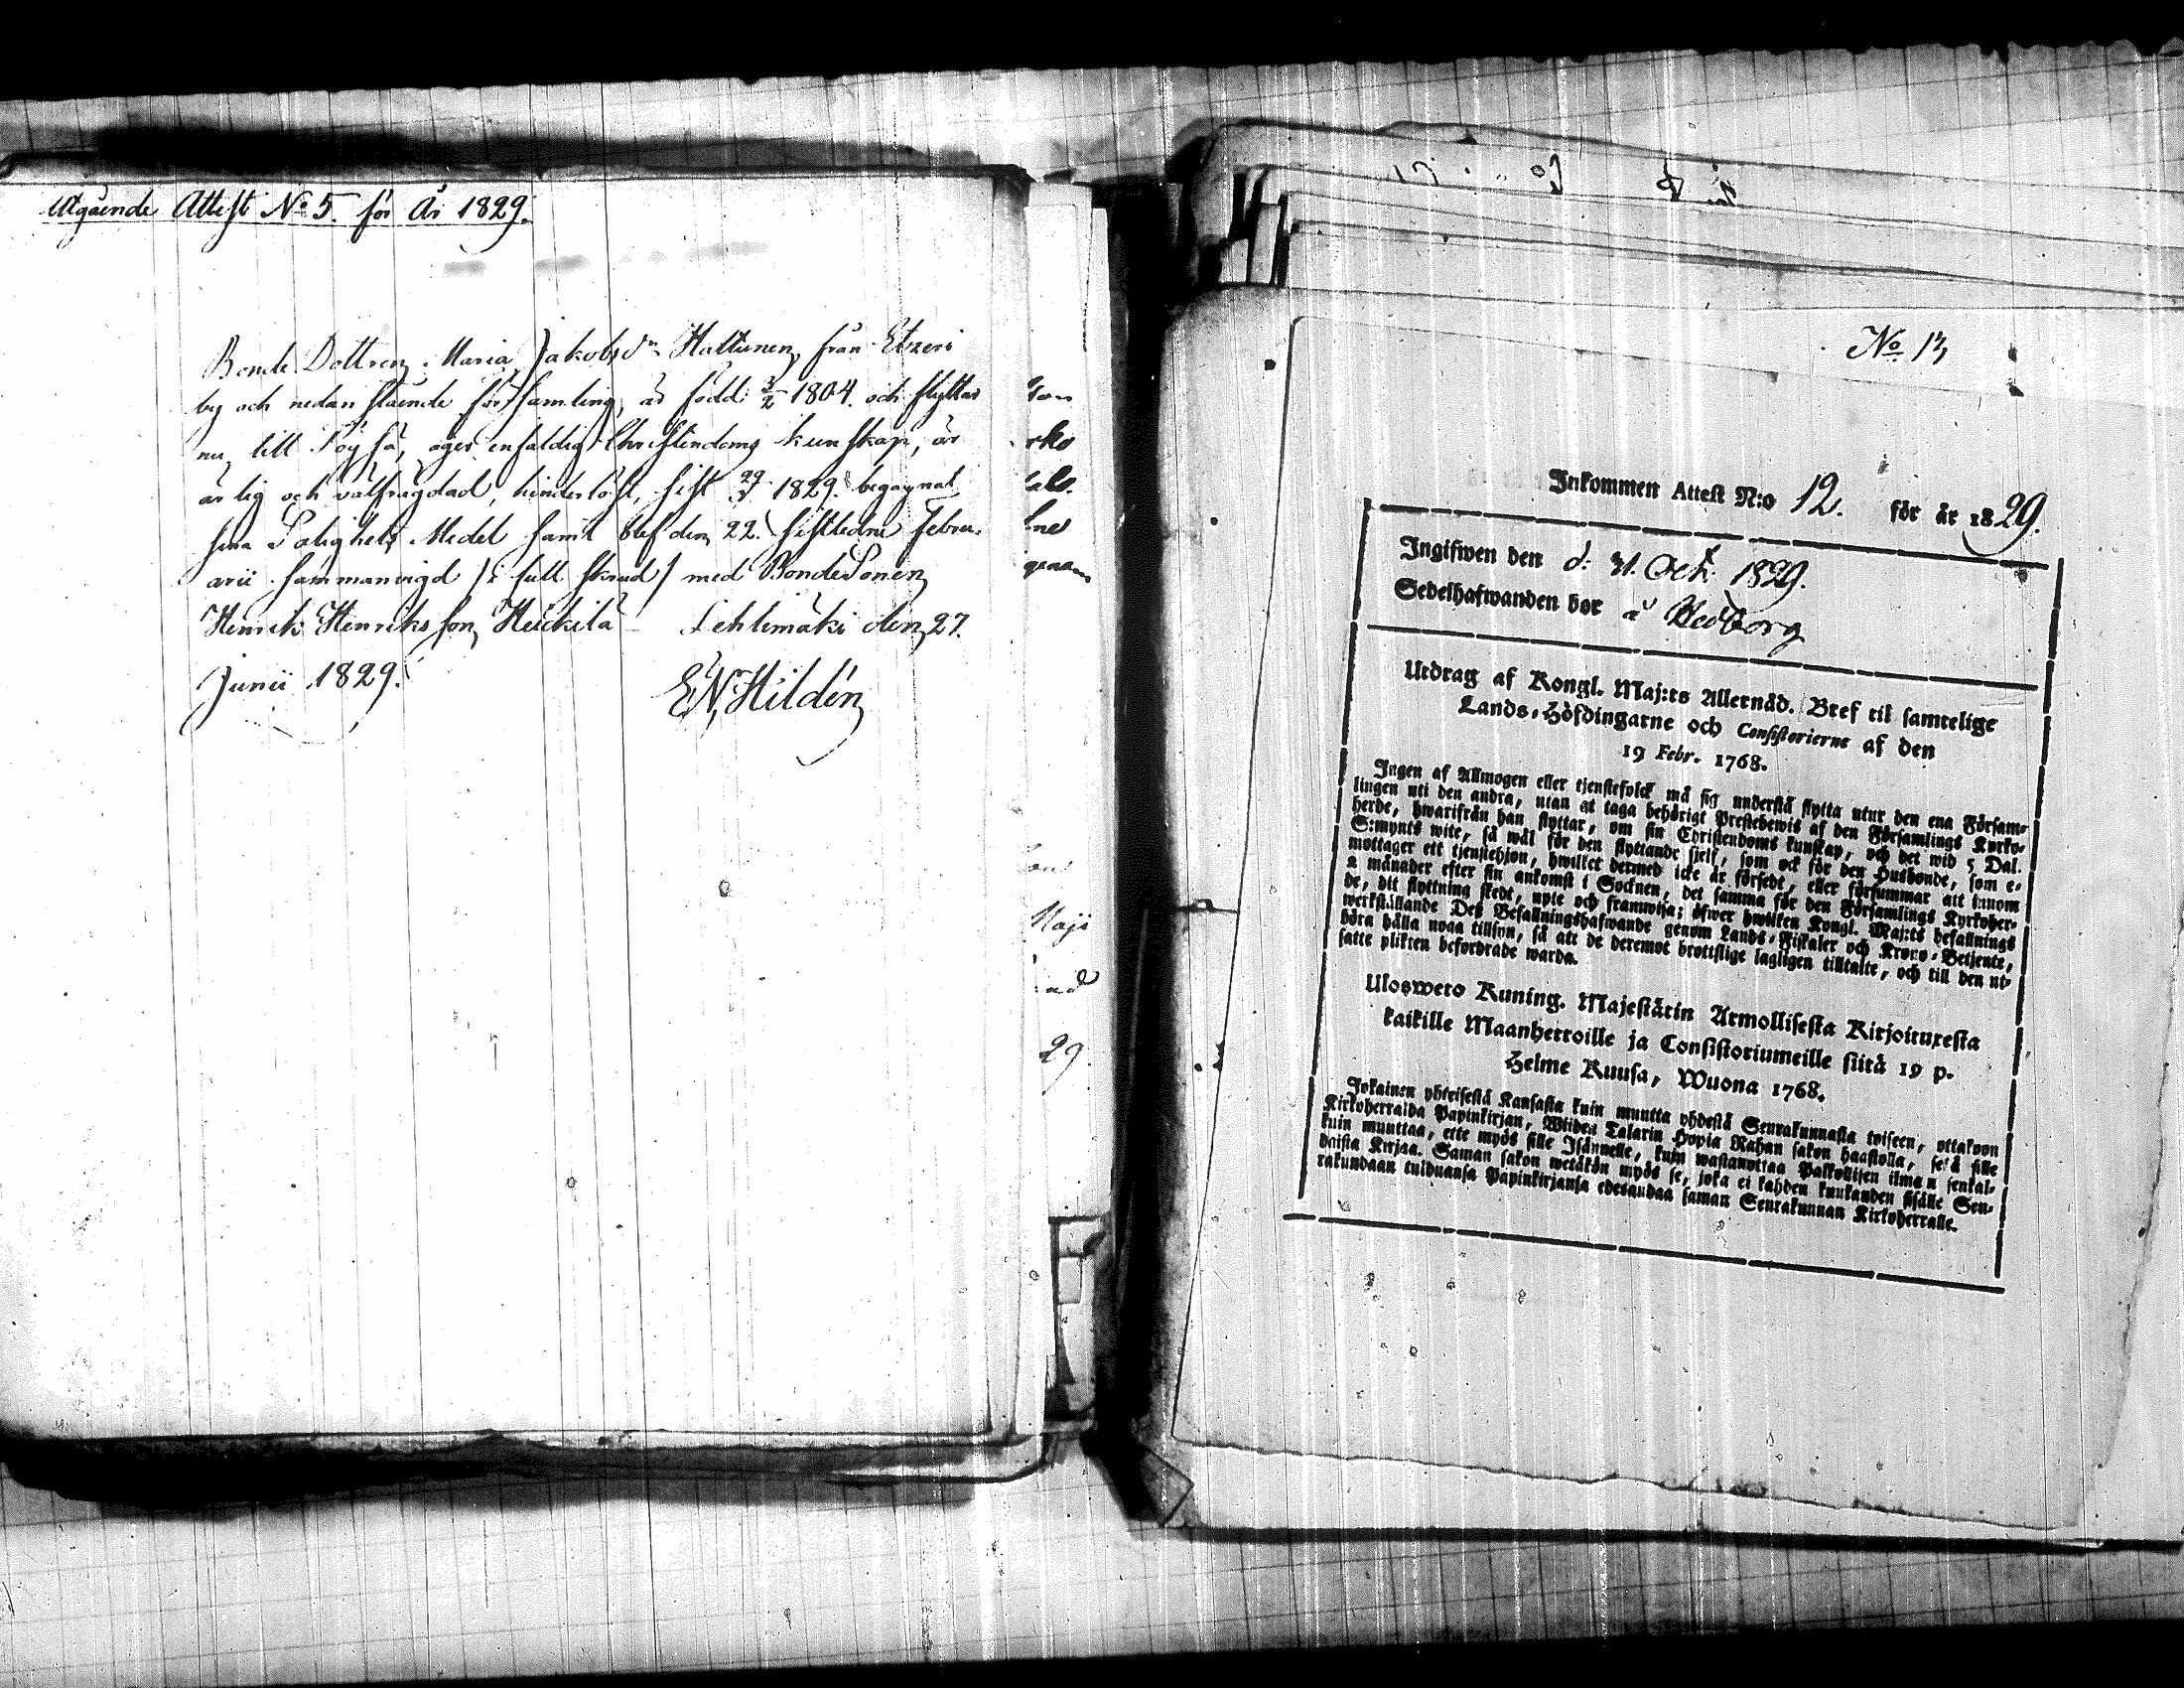 Utgående Attest No 5. för År 1829.
Bonde Dottren Maria Jakobsdr Hattunen från Etzeri
by och nedanstående församling, är född 3/2 1804. och flyttar
nu till Töysä, äger enfaldig Christendoms kunskap, är
ärlig och välfrägdad, hinderlöst, sist 1829. begagnat
sina Salighets Medel samt blef den 22. sistledne Febru-
arii sammanvigd /: i full skrud / med BondeSonen
Henrik Henriksson Heickilä Lehtimäki den 27.
Junii 1829.
E N Hildén
29
No 13
Inkommen Attest N:o 12. för år 1829.
Ingifwen den d. 31. Oct. 1829.
Sedelhafwanden bor å Hedborg
Utdrag af Kongl. Maj:ts Allernåd. Bref til samtelige
Lands-Höfdingarne och Consistorierne af den
19 Febr. 1768.
Ingen af Allmogen eller tjenstefolck må sig understå flytta utur den ena Försam-
lingen uti den andra, utan at taga behörigt Prestebewis af den Församlings Kyrko-
herde, hwarifrån han flyttar, om sin Christendoms kunskap, och det wid 5 Dal.
S:mynts wite, så wäl för den flyttande sjelf, som ock för den Husbonde, som e-
mottager ett tjenstehjon, hwilket dermed icke är försedt, eller försummar att innom
2 månader efter sin ankomst i Socknen, det samma för den Församlings Kyrkoher-
de, dit flyttning skedt, upte och framwisa; öfwer hwilken Kongl. Maj:ts befallnings
werkställande Deß Befallningshafwande genom Lands-Fiskaler och Krono-Betjente,
böra hålla noga tillsyn, så att de deremot brottslige lagligen tilltalte, och till den ut-
satte plikten befordrade warda.
Ulosweto Kuning. Majestätin Armollisesta Kirjoituxesta
kaikille Maanherroille ja Consistoriumeille siitä 19 p.
Helme Kuusa, Wuona 1768.
Jokainen yhteisestä Kansasta kuin muutta yhdestä Seurakunnasta toiseen, ottakoon
Kirkoherralda Papinkirjan, Wiiden Talarin Hopia Rahan sakon haastolla, sekä sille
kuin muuttaa, ette myös sille Isännelle, kuin wastanottaa Palkollisen ilman senkal-
daista Kirjaa. Saman sakon wetäkön myös se, joka ei kahden kuukauden sisälle Seu-
rakundaan tulduansa Papinkirjansa edesaudaa saman Seurakunnan Kirkoherralle.